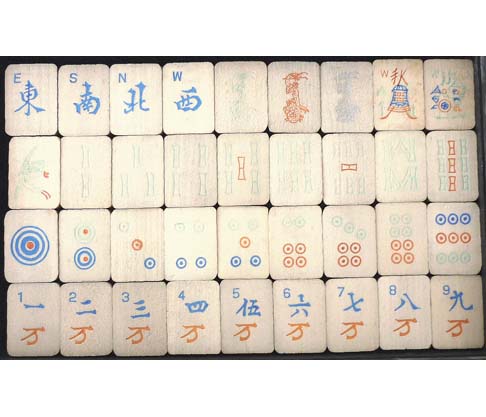 E S N W W 秋
東 南 北 西
1 2 3 4 5 6 7 8 9
一 二 三 四 伍 六 七 八 九
万 万 万 万 万 万 万 万 万